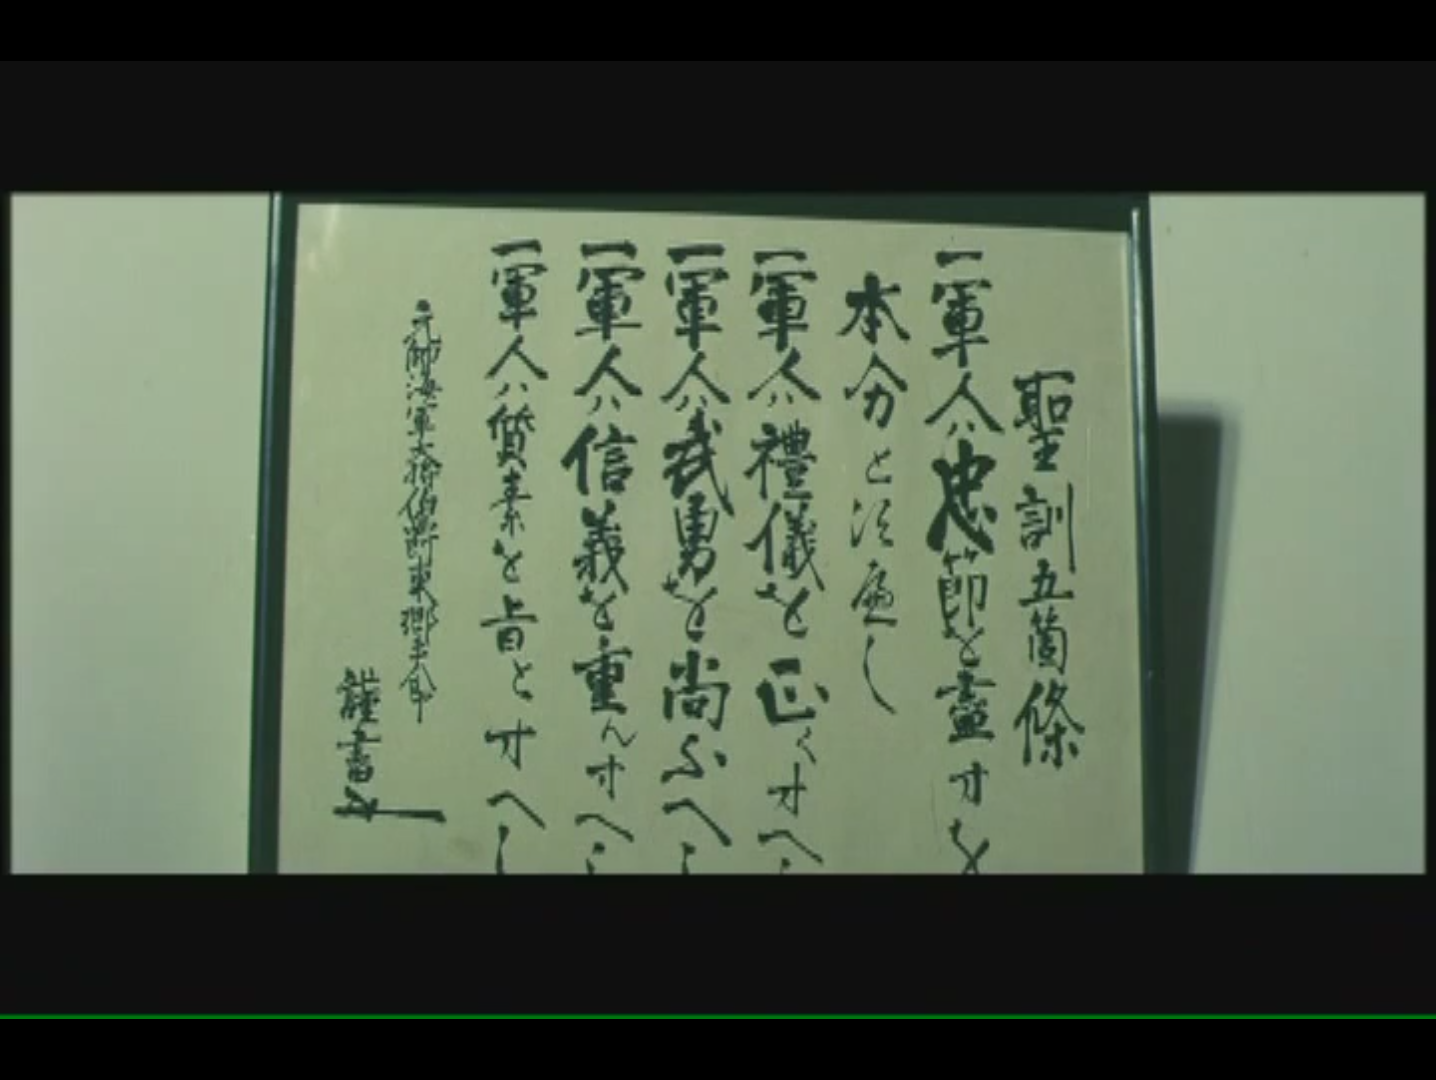 聖訓五箇條
一軍人ハ忠節を盡すを
本分と須へし
一軍人ハ禮儀を正くすへし
一軍人ハ武勇を尚ふへし
一軍人ハ信義を重んすへし
一軍人ハ質素を旨とすへし
元帥海軍大将伯爵東郷平八郎
謹書